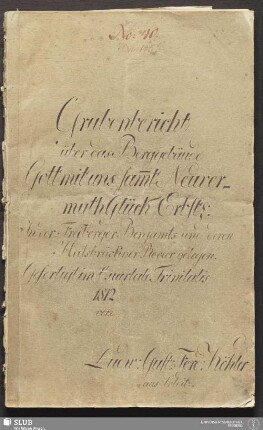 No: 40
Grubenbericht
über das Berggebäude
Gott mit uns samt Neuver-
muth Glück Erbst:
In der Freyberger Bergamts und deren
Halsbrückner Revier gelegen.
Gefertiget im Quartale Trinitatis
1812
von
Ludw: Gust: Ferd: Köhler
SLUB